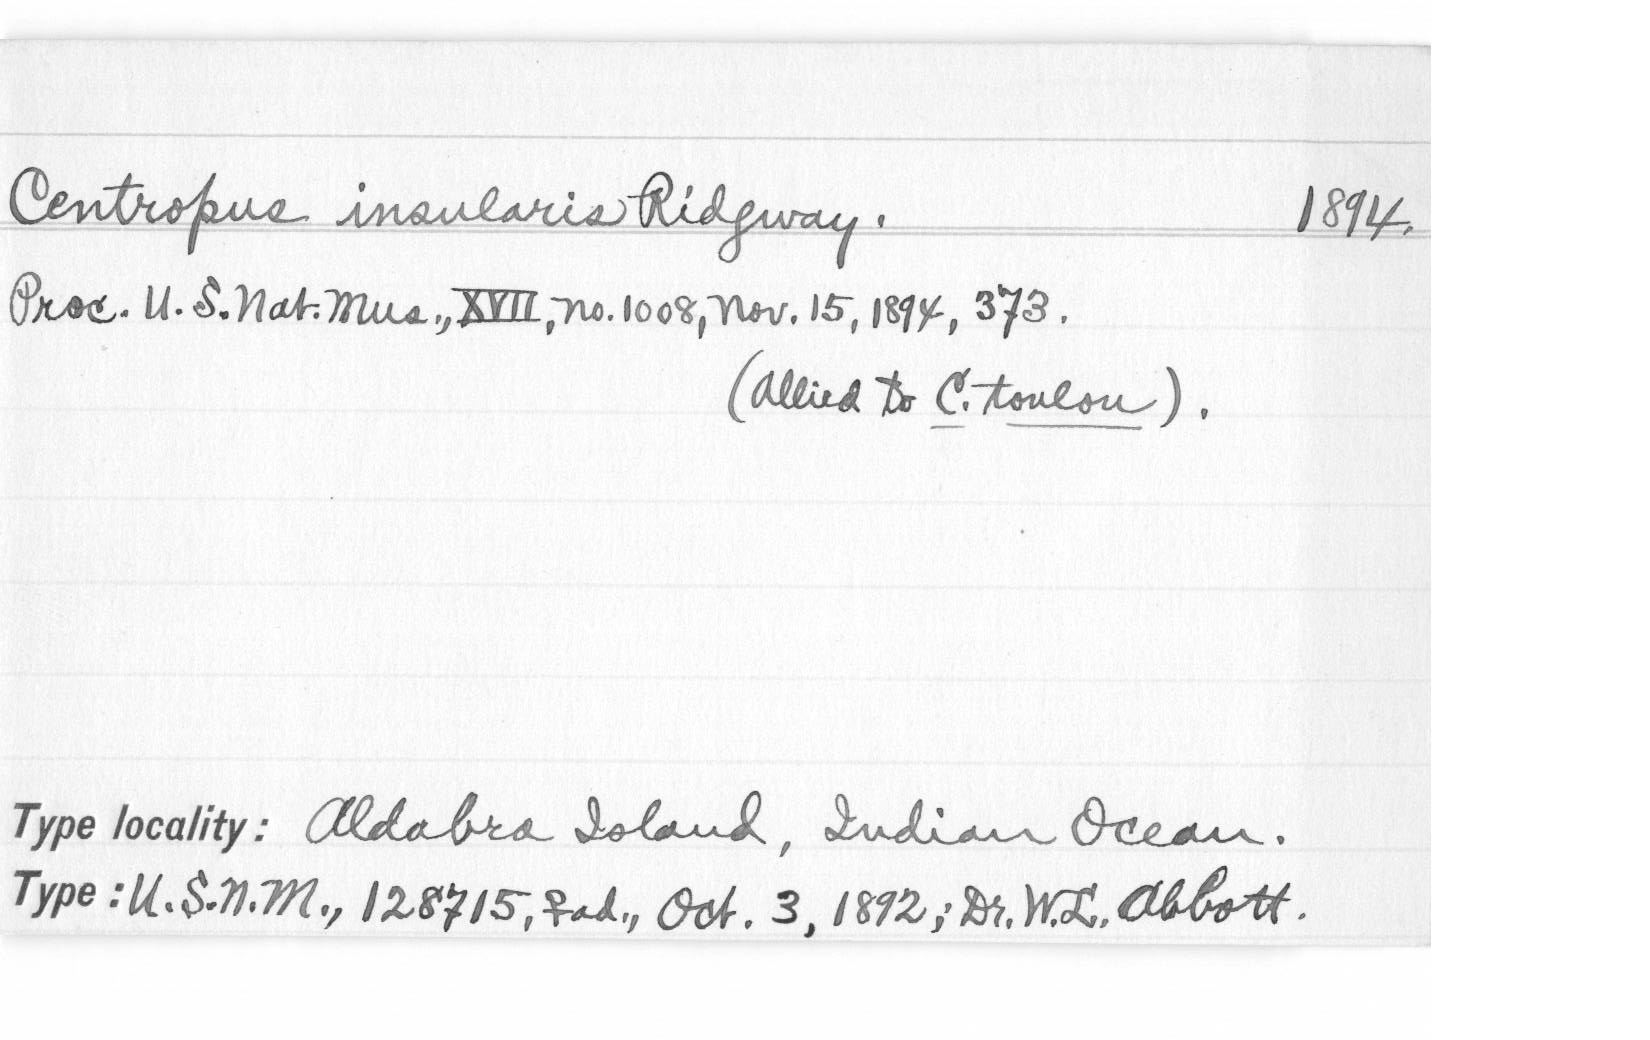 Centropus insularis Ridgway. 1894.
Proc. U. S. Nat. Mus., XVII, no. 1008, Nov. 15, 1894, 373.
(Allied to C. toulou).
Type locality: Aldabra Island, Indian Ocean.
Type: U.S.N.M., 128715, ♀ ad., Oct. 3, 1892; Dr. W.L. Abbott.